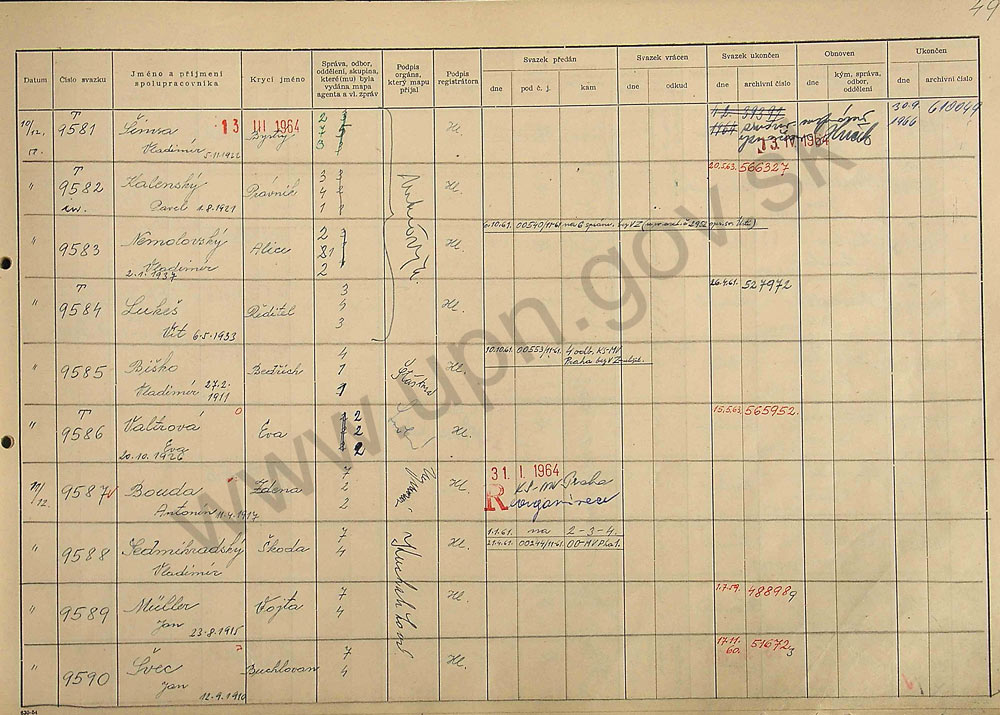 49
Datum
Číslo svazku
Jméno a příjmení
spolupracovníka
Krycí jméno
Správa, odbor,
oddělení, skupina,
které(mu) byla
vydána mapa
agenta a vl. zpráv
Podpis
orgánu,
který mapu
přijal
Podpis
registrátora
Svazek předán
dne
pod č. j.
kam
Svazek vrácen
dne
odkud
Svazek ukončen
dne
archivní číslo
Obnoven
dne
kým, správa,
odbor,
oddělení
Ukončen
dne
archivní číslo
10/12. T 9581 Šimsa 13 III 1964 Bystrý 2 3 Hl. 30.9. 619049
Vladimír 5.11.1922 1966
3. IV. 1964
" T 9582 Kalenský Právník 3 4 1 Hl. 20.5.63. 566327
Pavel 1.8.1921
" 9583 Nemolovský Alice 2 81 2 Hl. 6.10.61. 00540/11-61
Vladimír
2.1.1937
" T 9584 Lukeš Ředitel 3 4 3 Hl. 26.4.61. 527972
Vít 6.5.1933
" 9585 Biško Bedřich 4 1 1 Hl. 10.10.61. 00553/11-61. 4 odb. KS-MV
Praha
Vladimír 27.2.
1911
" T 9586 Valtrová Eva 2 2 2 Hl. 15.5.63. 565952.
Eva
20.10.1926
11/12. 9587 Bouda Zdena 7 2 2 Hl. 31. I. 1964 KS-MV-Praha
R
Antonín 11.4.1917
" 9588 Sedmihradský Škoda 7 4 Hl. 1.1.61. na 2-3-4
21.4.61. 00244/11-61. 00-MV Pha 1.
Vladimír
" 9589 Müller Vojta 7 4 Hl. 1.7.59. 488989
Jan 23.8.1915
" 9590 Švec Buchlovan 7 4 Hl. 17.11.
60. 516723
Jan 12.9.1910
www.upn.gov.sk